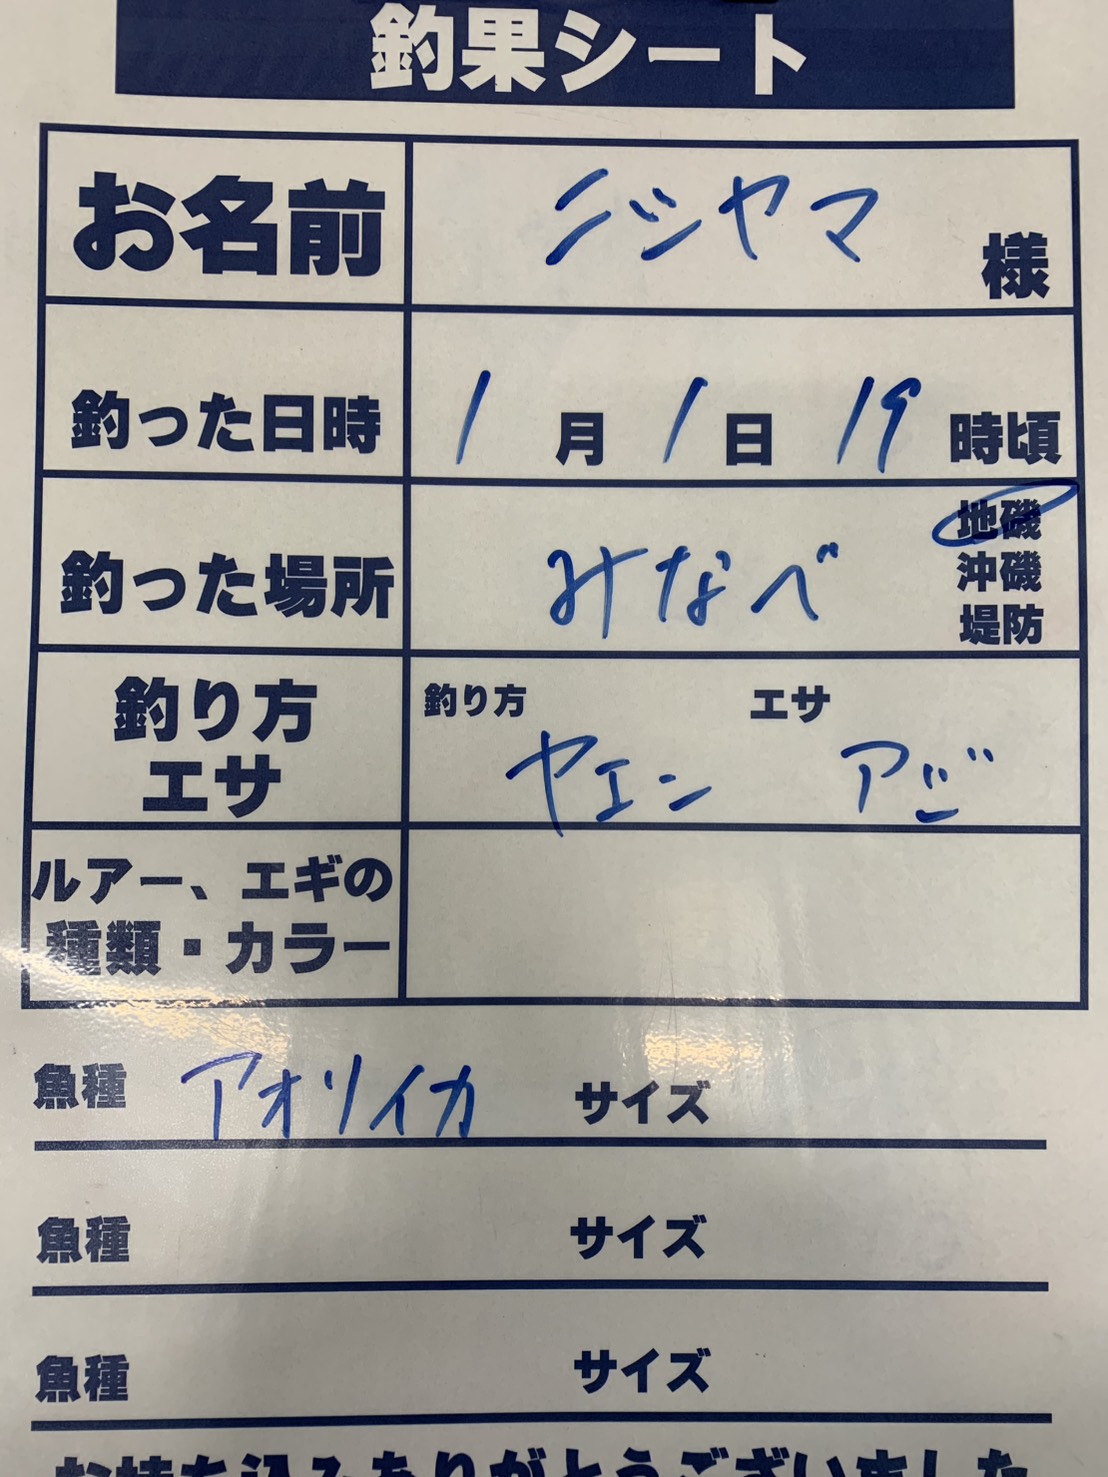 釣果シート
お名前 ニシヤマ 様
釣った日時 1月1日19時頃
釣った場所 みなべ 地磯
沖磯
堤防
釣り方 エサ
釣り方 ヤエン エサ アジ
ルアー、エギの
種類・カラー
魚種 アオリイカ サイズ
魚種 サイズ
魚種 サイズ
お持ち込みありがとうございました